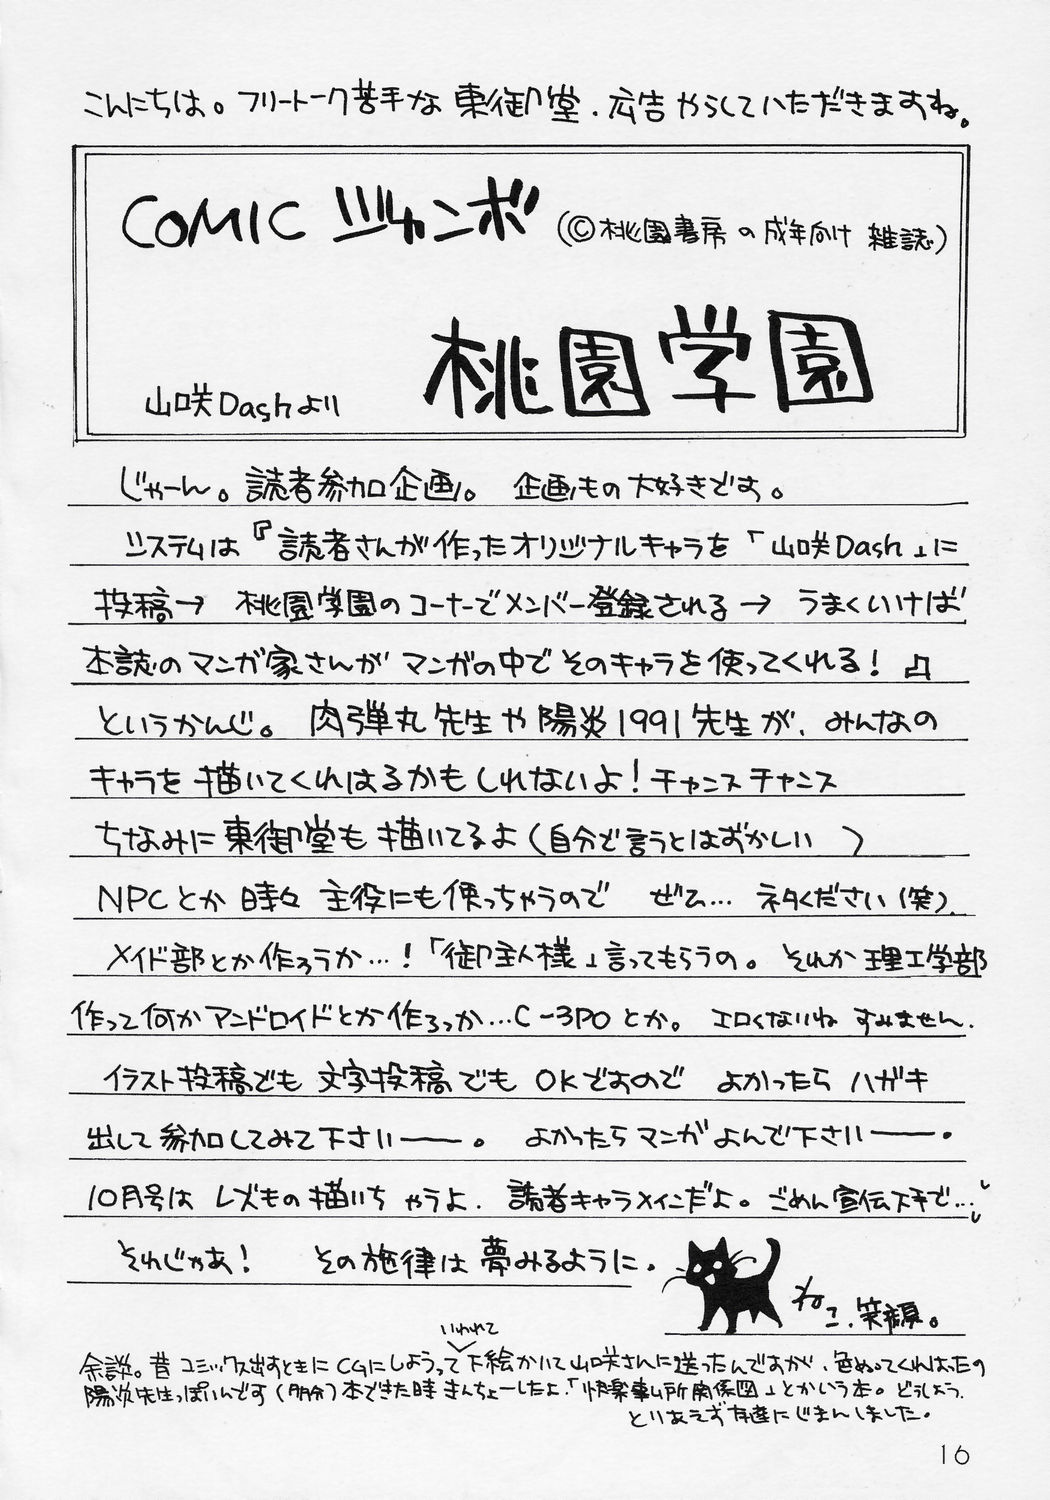 こんにちは。フリートーク苦手な東御堂、広告やらしていただきますね。
COMIC ジャンボ (©桃園書房の成年向け雑誌)
桃園学園
山咲Dashより
じゃーん。読者参加企画。企画もの大好きです。
システムは『読者さんが作ったオリジナルキャラを「山咲Dash」に
投稿→ 桃園学園のコーナーでメンバー登録される→ うまくいけば
本誌のマンガ家さんがマンガの中でそのキャラを使ってくれる!♫
というかんじ。肉弾丸先生や陽炎1991先生が、みんなの
キャラを描いてくれはるかもしれないよ!チャンスチャンス
ちなみに東御堂も描いてるよ(自分で言うとはずかしい )
NPCとか時々主役にも使っちゃうので ぜひ…ネタください(笑)
メイド部とか作ろうか…!「御主人様」言ってもらうの。それか理工学部
作って何かアンドロイドとか作ろっか…C-3POとか。エロくないねすみません。
イラスト投稿でも文字投稿でもOKですので よかったらハガキ
出して参加してみて下さい——。よかったらマンガよんで下さい——。
10月号はレズもの描いちゃうよ。読者キャラメインだよ。ごめん宣伝下手で…
それじゃあ! その施律は夢みるように。
ねこ、笑顔。
いわれて
余談。昔コミックス出すときにCGにしようって下絵かいて山咲さんに送ったんですが、色ぬってくれはったの
陽炎先生っぽいんです(多分)本できた時きんちょーしたよ。「快楽事ム所関係図」とかいう本。どうしよう、
とりあえず友達にじまんしました。
16